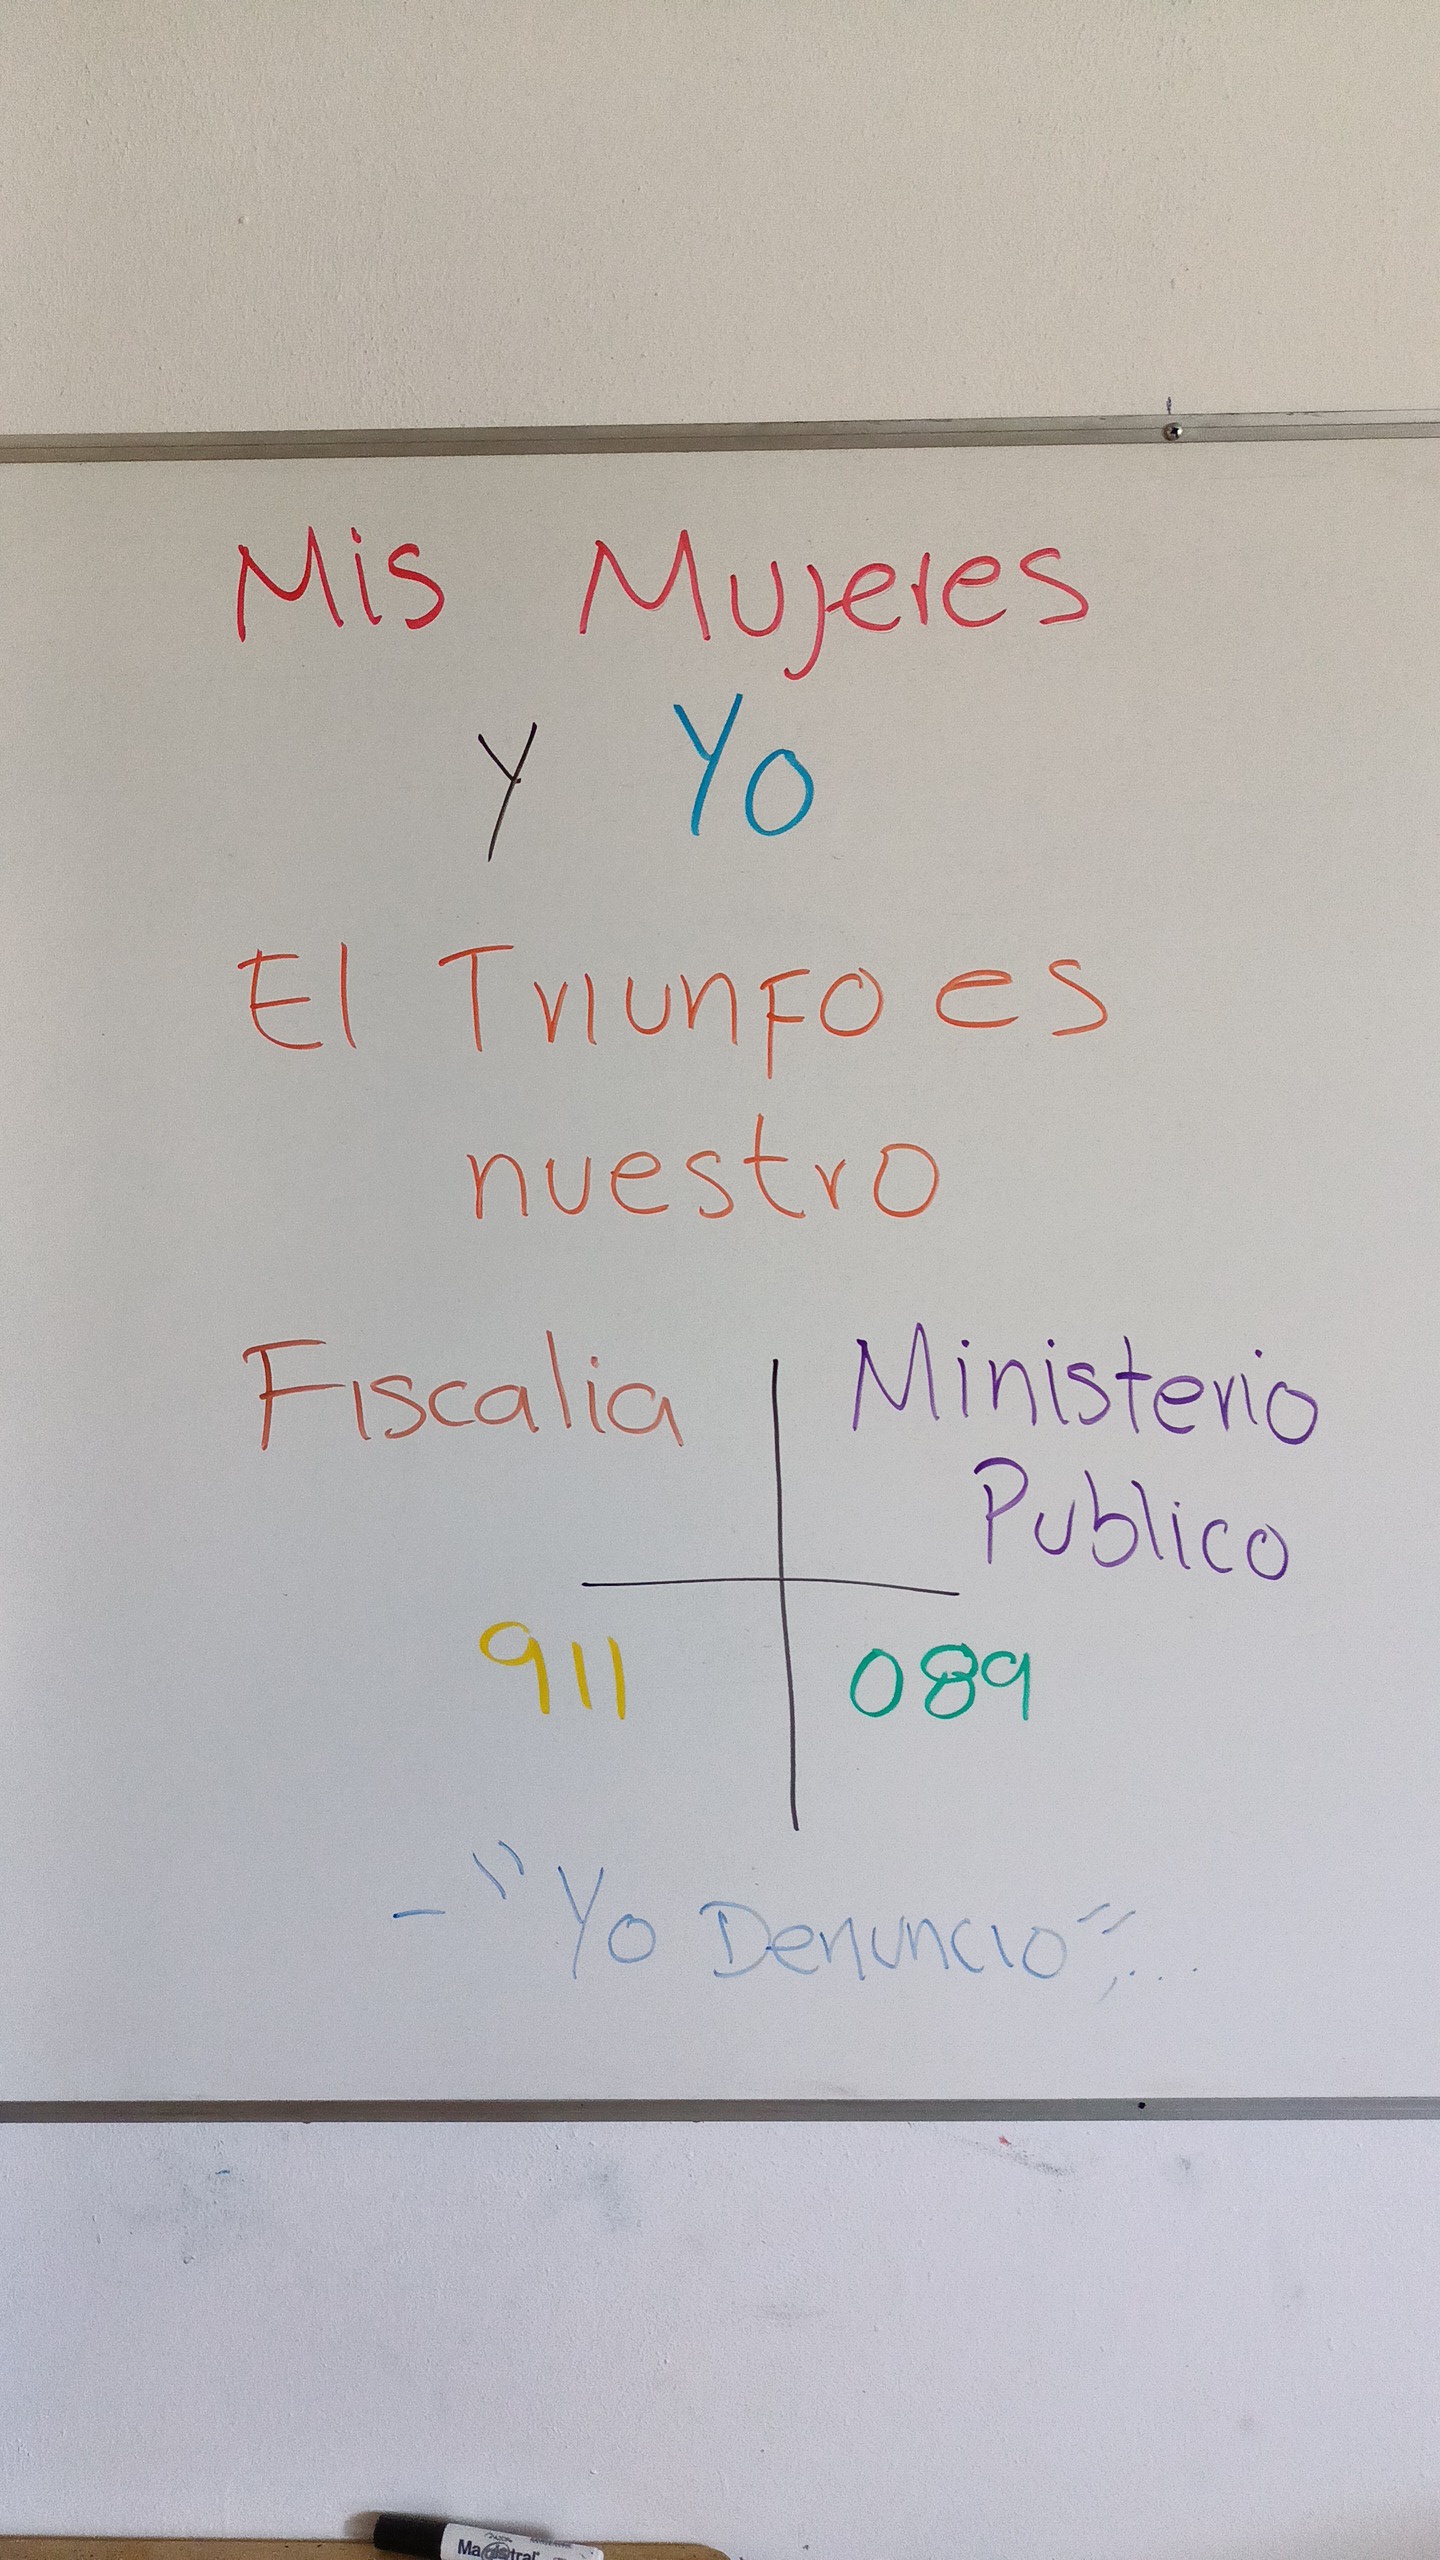 Mis Mujeres
y Yo
El Triunfo es
nuestro
Fiscalia
Ministerio
Publico
911
089
- "Yo Denuncio",...
Magistral